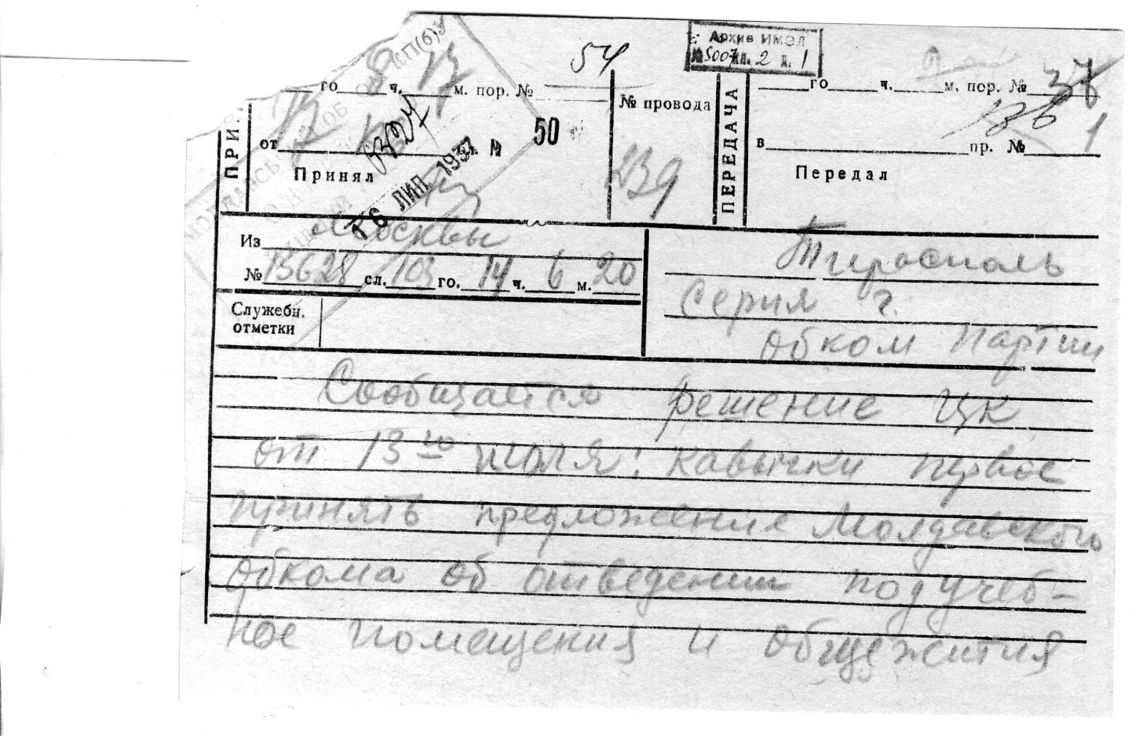 Архив ИМЭЛ
№ 5007 ил. 2 л. 1
54
го ч. м. пор. №
№ провода
го ч. м. пор. № 37
136
ПРИ.
от сл. №
50
1327
239
в пр. № 1
Принял
16 ЛИП 1937
ПЕРЕДАЧА
Передал
Из Москвы
№ 13628 сл. 103 го. 14 ч. 6 м. 20
Тирасполь
Серия Г.
обком партии
Служебн.
отметки
Сообщается решение ЦК
от 13го июля: кавычки первое
принять предложение Молдавского
обкома об отведении под учеб-
ное помещения и общежития